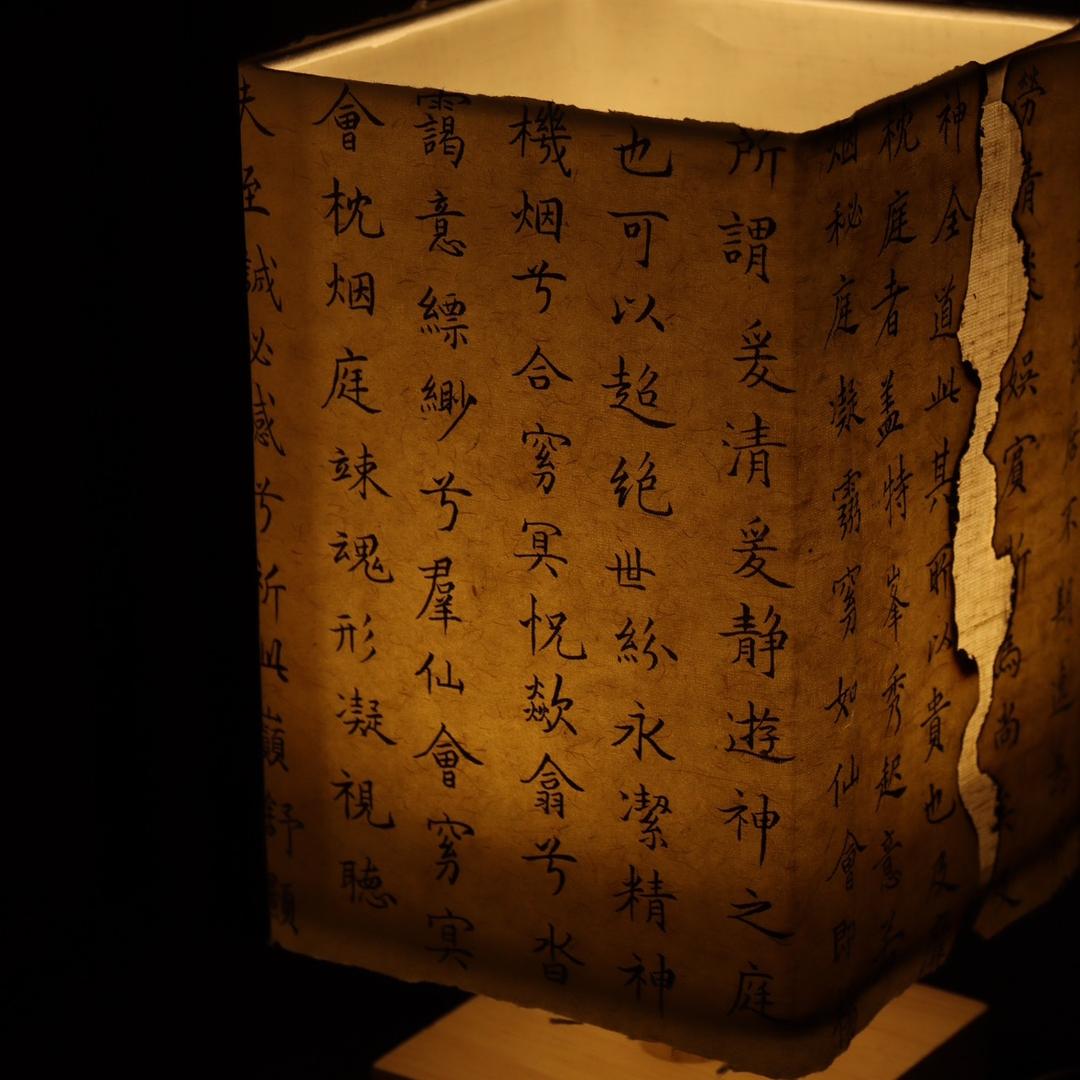 不期
娛賓
神全道此其所以貴也及
枕庭者蓋特峯秀起意若
烟秘庭凝霛窅如仙會即
所謂爰清爰静遊神之庭
也可以超絶世紛永潔精神
機烟兮合窅冥怳歘翕兮沓
靄意縹緲兮羣仙會窅冥
會枕烟庭竦魂形凝視聽
夫至誠必感兮祈此巔